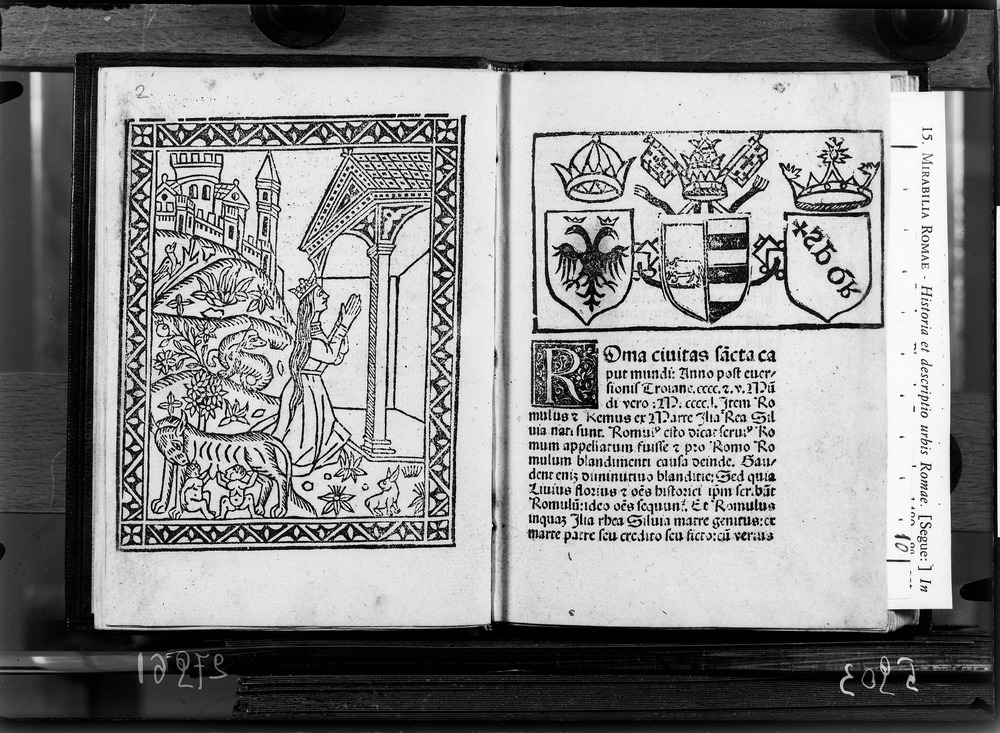 2
Roma ciuitas sãcta ca
put mundi: Anno post euer-
sionis Troiane.cccc.z.v. Mũ
di vero :M. cccc.l. Item Ro
mulus z Remus ex Marte Ilia Rea Sil
uia nati sunt. Romul⁹ cisto dicat serui⁹ Ro
mum appellatum fuisse z pro Romo Ro
mulum blandimenti causa deinde. Gau-
dent eniz diminutiuo blanditie; Sed quia
Liuius florius z oẽs historici ipm scribãt
Romulũ: ideo oẽs sequunt². Et Romulus
inquaz Ilia rhea Siluia matre genitus: et
marte patre seu credito seu ficto: cũ verius
15. MIRABILIA ROMAE - Historia et descriptio urbis Romae. [Segue:] In
10
27961
5203